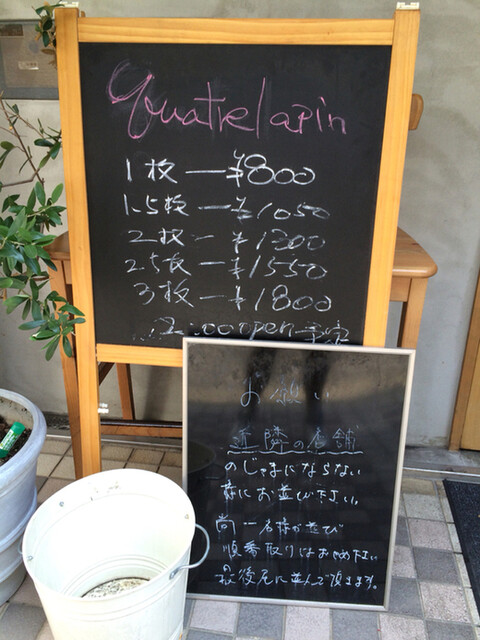 Quatre lapin
1枚 ー ¥800
1.5枚 ー ¥1050
2枚 ー ¥1300
2.5枚 ー ¥1550
3枚 ー ¥1800
open 予定
お願い
近隣の店舗
のじゃまにならない
様にお並び下さい。
尚一名様が並び
順番取りはおやめ下さい
最後尾に並んで頂きます。